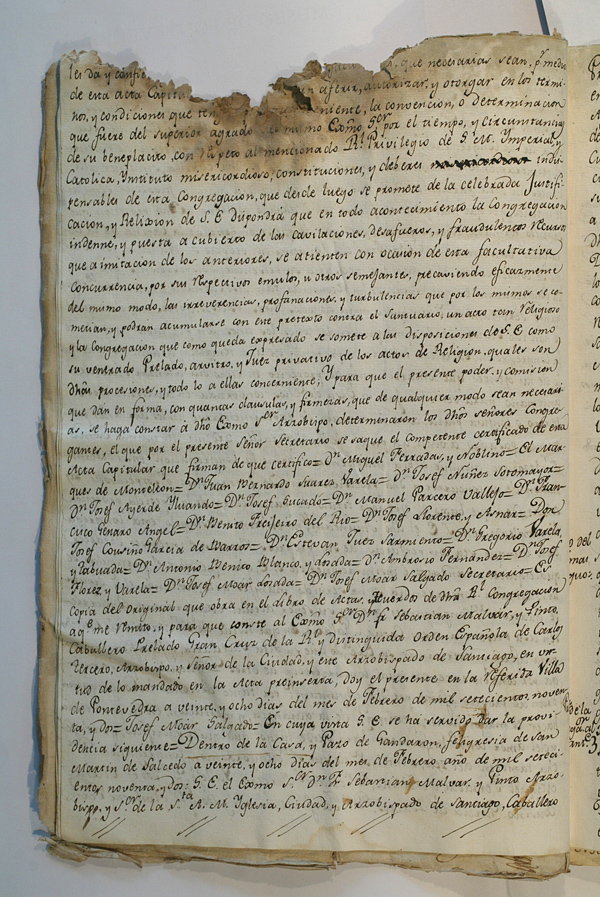 les da y confie que necesarias sean, pr. medio
de esta acta Capitu aferir, autorizar, y otorgar en los termi-
nos, y condiciones que ten niente, la convención, o determinacion
que fuere del superior agrado mismo Exmo. Sor. por el tiempo, y circunstancias
de su beneplacito, con respeto al mencionado Rl. Privilegio de S. M. Imperial, y
Catolica, Ynstituto misericordioso, constituciones, y deberes indis-
pensables de esta Congregacion, que desde luego se promete de la celebrada Justifi-
cacion, y Relixion de S. E. dispondrá que en todo acontecimiento la Congregacion
indenne, y puesta a cubierto de las cavilaciones, desafueros, y fraudulentos recursos
que a imitacion de los anteriores, se atienten con ocasion de esta facultativa
concurrencia, por sus respectivos emulos, u otros semejantes, precaviendo eficazmente
del mismo modo, las irreverencias, profanaciones, y turbulencias que por los mismos se co-
metian, y podran acumularse con este pretexto contra el Santuario, un acto tan religioso
y la Congregacion que como queda expresado se somete a las disposiciones de S. E. como
su venerado Prelado, arvitro, y Juez privativo de los actos de Religion, quales son
dhãs procesiones, y todo lo a ellas concerniente; Y para que el presente poder, y comision
que dan en forma, con quantas clausulas, y firmezas, que de qualquier modo sean necesari-
as, se haga constar á dho Exmo Sor Arzobispo, determinaron los dhõs señores Congre-
gantes, el que por el presente Señor Secretario se saque el competente certificado de esta
Acta Capitular que firman de que certifico= Dn. Miguel Ferradas, y Nobliño= El Mar-
ques de Monteleon= Dn. Juan Bernardo Suarez Varela= Dn. Josef Nuñez Sotomayor=
Dn. Josef Ayerde = Dn. Josef Bucado= Dn. Manuel Parcero Vallejo= Dn. Fran-
cisco Genaro Angel= Dn. Benito Freijeiro del Rio= Dn. Josef Llorente, y Asnar= Don
Josef Cousiño Garcia de Barros= Dn. Estevan Juez Sarmiento= Dn. Gregorio Varela
y Taboada= Dn. Antonio Benito Blanco, y dosada= Dn. Ambrosio Fernandez= Dn. Josef
Florez y Varela= Dn. Josef Moar dosada= Dn. Josef Moar Salgado Secretario= Es
Copia del Original que obra en el Libro de Actas, Acuerdos de dhã Rl. Congregacion
a q.e me remito, y para que conste al Exmo Sor Dn. fr. Sebastian Malvar, y Pinto,
Caballero Prelado Gran Cruz de la Rl. y distinguida Orden Española de Carlos
Tercero, Arzobispo, y Señor de la Ciudad, y este Arzobispado de Santiago, en vir-
tud de lo mandado en la Acta preinserta, doy el presente en la referida Villa
de Pontevedra a veinte, y ocho dias del mes de Febrero de mil setecientos, noven-
ta, y dos= Josef Moar Salgado= En cuya vista S. E. se ha servido dar la provi-
dencia siguiente= Dentro de la Casa, y Pazo de Gandaron, feligresia de San
Martin de Salcedo a veinte, y ocho dias del mes de Febrero, año de mil seteci-
entos noventa, y dos: S. E. el Exmo Sor. Dn. Fr. Sebastian Malvar, y Pinto Arzo-
bispo, y Sor. de la Sta. A. M. Yglesia, Ciudad, y Arzobispado de Santiago, Caballero